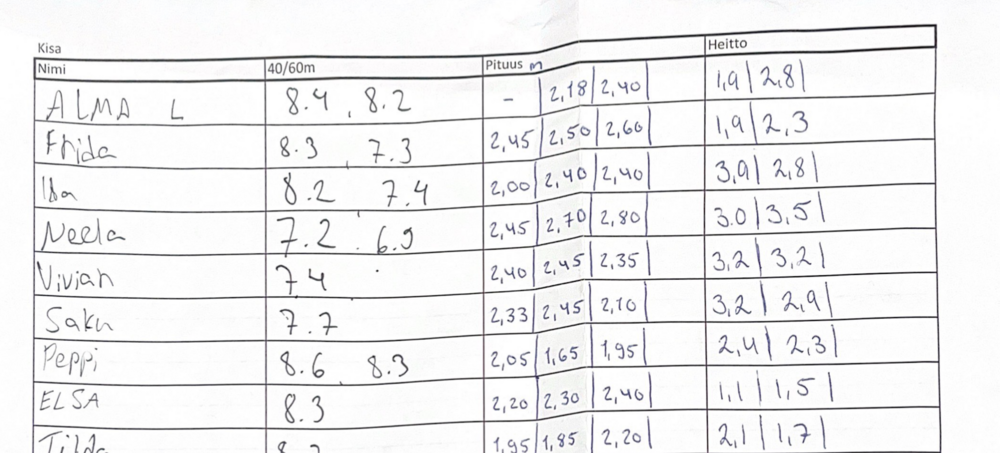 Kisa Heitto
Nimi 40/60m Pituus m
ALMA L 8.4, 8.2 - | 2,18 | 2,40 | 1,9 | 2,8 |
Frida 8.3, 7.3 2,45 | 2,50 | 2,60 | 1,9 | 2,3
8.2 7.4 2,00 | 2,40 | 2,40 | 3,9 | 2,8 |
Neela 7.2. 6.9 2,45 | 2,70 | 2,80 | 3.0 | 3,5 |
Vivian 7.4 2,40 | 2,45 | 2,35 | 3,2 | 3,2 |
Saku 7.7 2,33 | 2,45 | 2,10 | 3,2 | 2,9 |
Peppi 8.6, 8.3 2,05 | 1,65 | 1,95 | 2,4 | 2,3 |
ELSA 8.3 2,20 | 2,30 | 2,40 | 1,1 | 1,5 |
Tilda 1,95 | 1,85 | 2,20 | 2,1 | 1,7 |